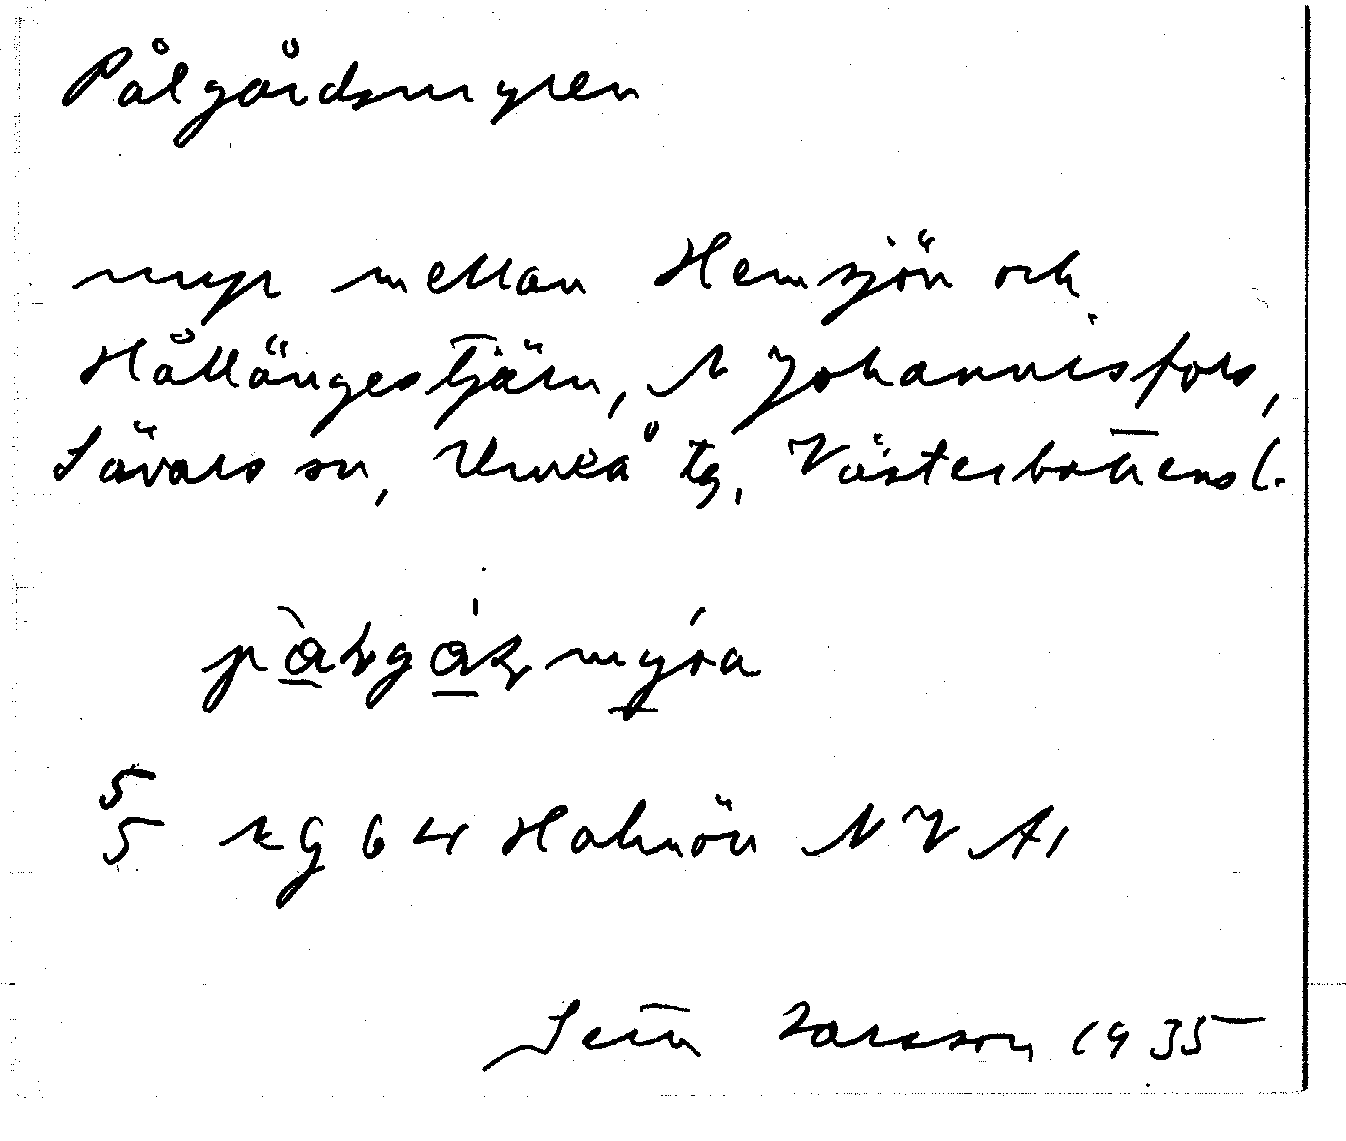 Pålgårdsmyren
myr mellan Hemsjön och
Hållängestjärn, N Johannisfors,
Sävars sn, Umeå tg, Västerbottens l.
5
5 kg 64 Holmön NV A1
Larsson 1935